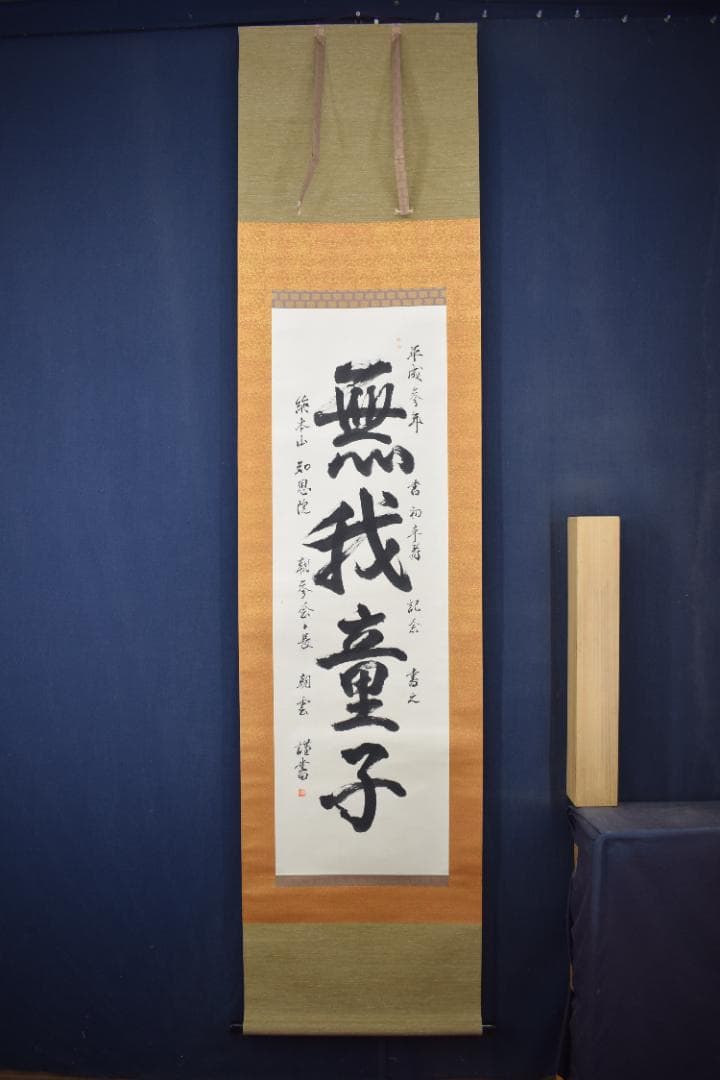 平成参年 書初 記念 書之
無我童子
総本山 知恩院 朝参会々長 朝雲 謹書